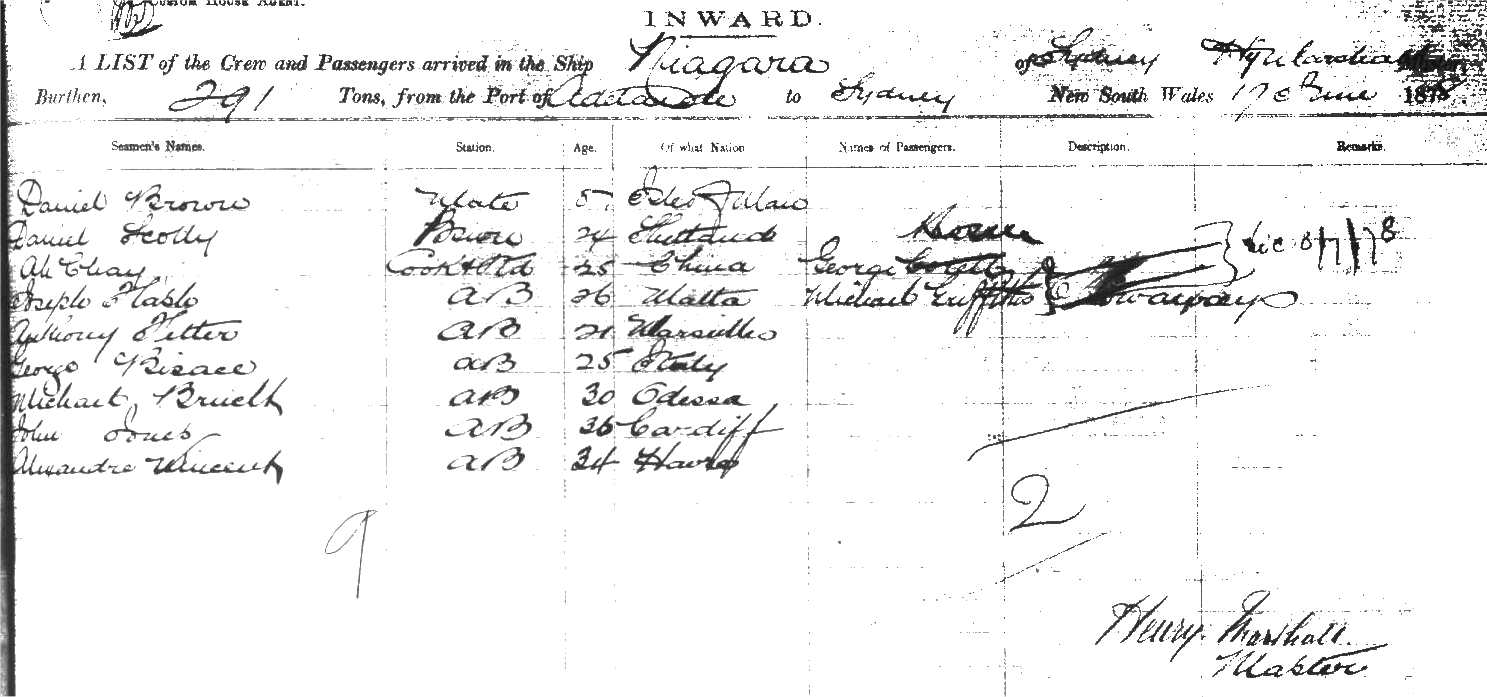 CUSTOM HOUSE AGENT.
INWARD.
A LIST of the Crew and Passengers arrived in the Ship Niagara of Sydney Hy Marshall Master,
Burthen, 291 Tons, from the Port of Adelaide to Sydney New South Wales 17 June 1878
Seamen's Names. Station. Age. Of what Nation Names of Passengers. Description. Remarks.
Daniel Brown Mate 57 Isle of Man
Daniel Scolly Bosun 24 Shetland
Ah Chay Cook & Std 25 China George
Joseph Flash AB 26 Malta Michael Griffiths Stowaways
Anthony Fetter AB 21 Marseilles
George Bisace AB 25 Italy
Michael AB 30 Odessa
John Jones AB 36 Cardiff
Alexandre Vincent AB 34 Havre
9
2
Henry Marshall
Master